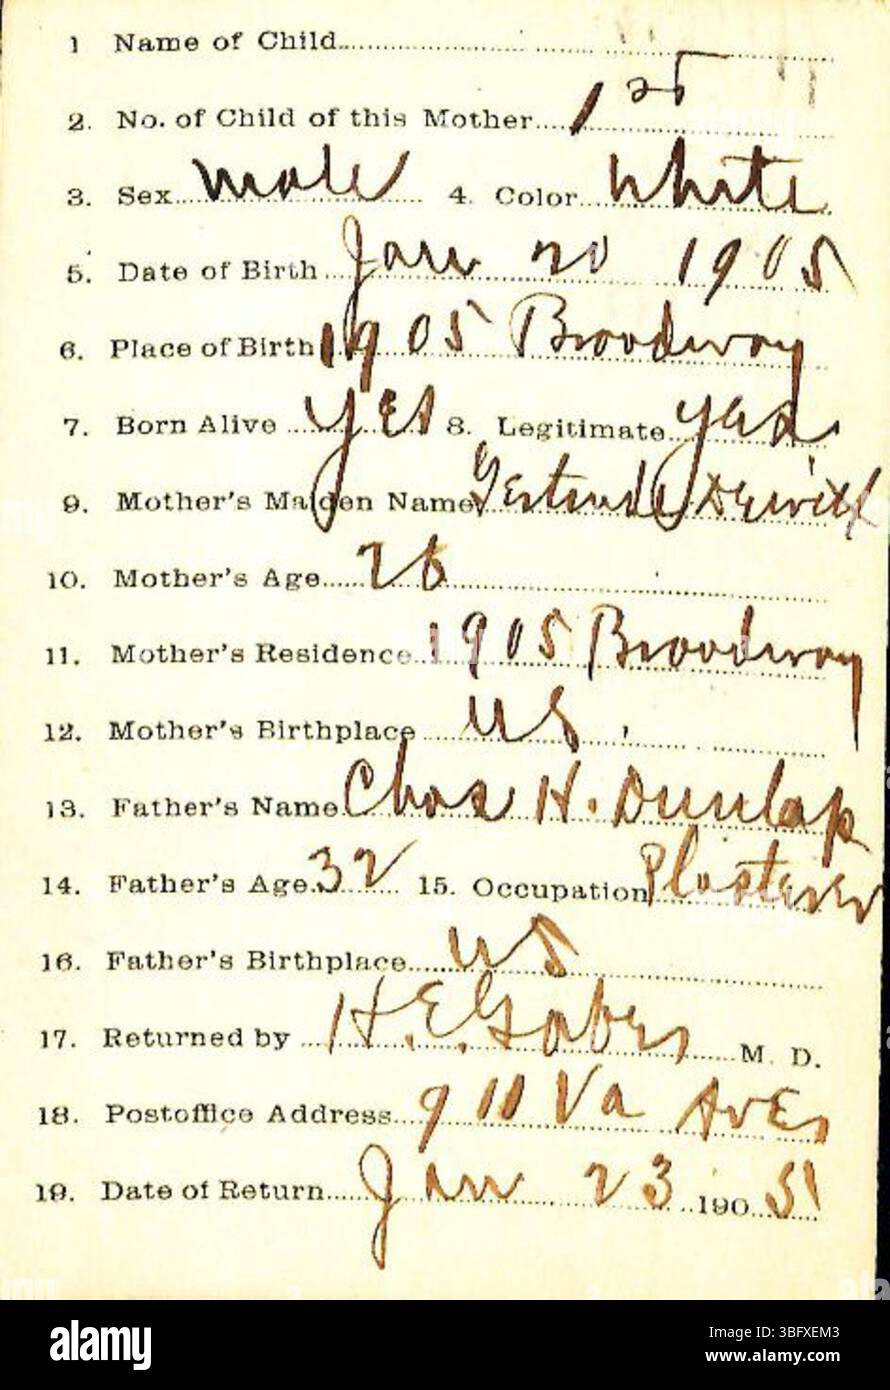 1 Name of Child
2. No. of Child of this Mother 1st
3. Sex male 4. Color white
5. Date of Birth Jan 20 1905
6. Place of Birth 1905 Broadway
7. Born Alive yes 8. Legitimate yes
9. Mother's Maiden Name Gertrude Dewitt
10. Mother's Age 26
11. Mother's Residence 1905 Broadway
12. Mother's Birthplace US
13. Father's Name Chas H. Dunlap
14. Father's Age 32 15. Occupation Plasterer
16. Father's Birthplace US
17. Returned by H. E. Gabers M. D.
18. Postoffice Address 911 Va Ave
19. Date of Return Jan 23 1905
alamy
Image ID: 3BFXEM3
www.alamy.com